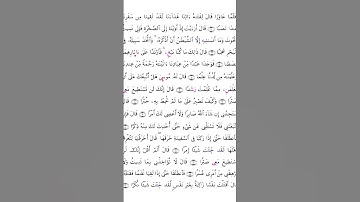 فَلَمَّا جَاوَزَا قَالَ لِفَتَىٰهُ ءَاتِنَا غَدَآءَنَا لَقَدْ لَقِينَا مِن سَفَرِنَا
هَٰذَا نَصَبًا ۝ قَالَ أَرَءَيْتَ إِذْ أَوَيْنَآ إِلَى ٱلصَّخْرَةِ فَإِنِّي نَسِيتُ
ٱلْحُوتَ وَمَآ أَنسَىٰنِيهُ إِلَّا ٱلشَّيْطَٰنُ أَنْ أَذْكُرَهُۥ وَٱتَّخَذَ سَبِيلَهُۥ
ٱلْبَحْرِ عَجَبًا ۝ قَالَ ذَٰلِكَ مَا كُنَّا نَبْغِ فَٱرْتَدَّا عَلَىٰٓ ءَاثَارِهِمَا
قَصَصًا ۝ فَوَجَدَا عَبْدًا مِّنْ عِبَادِنَآ ءَاتَيْنَٰهُ رَحْمَةً مِّنْ عِندِنَا
وَعَلَّمْنَٰهُ مِن لَّدُنَّا عِلْمًا ۝ قَالَ لَهُۥ مُوسَىٰ هَلْ أَتَّبِعُكَ عَلَىٰٓ
تُعَلِّمَنِ مِمَّا عُلِّمْتَ رُشْدًا ۝ قَالَ إِنَّكَ لَن تَسْتَطِيعَ مَعِيَ
صَبْرًا ۝ وَكَيْفَ تَصْبِرُ عَلَىٰ مَا لَمْ تُحِطْ بِهِۦ خُبْرًا ۝
قَالَ سَتَجِدُنِيٓ إِن شَآءَ ٱللَّهُ صَابِرًا وَلَآ أَعْصِي لَكَ أَمْرًا ۝ قَالَ فَإِنِ
ٱتَّبَعْتَنِي فَلَا تَسْـَٔلْنِي عَن شَيْءٍ حَتَّىٰٓ أُحْدِثَ لَكَ مِنْهُ ذِكْرًا ۝
فَٱنطَلَقَا حَتَّىٰٓ إِذَا رَكِبَا فِي ٱلسَّفِينَةِ خَرَقَهَا قَالَ أَخَرَقْتَهَا
لِتُغْرِقَ أَهْلَهَا لَقَدْ جِئْتَ شَيْـًٔا إِمْرًا ۝ قَالَ أَلَمْ أَقُلْ إِنَّكَ
لَن تَسْتَطِيعَ مَعِيَ صَبْرًا ۝ قَالَ لَا تُؤَاخِذْنِي بِمَا نَسِيتُ وَلَا
تُرْهِقْنِي مِنْ أَمْرِي عُسْرًا ۝ فَٱنطَلَقَا حَتَّىٰٓ إِذَا لَقِيَا غُلَٰمًا فَقَتَلَهُۥ
قَالَ أَقَتَلْتَ نَفْسًا زَكِيَّةًۢ بِغَيْرِ نَفْسٍ لَّقَدْ جِئْتَ شَيْـًٔا نُّكْرًا ۝